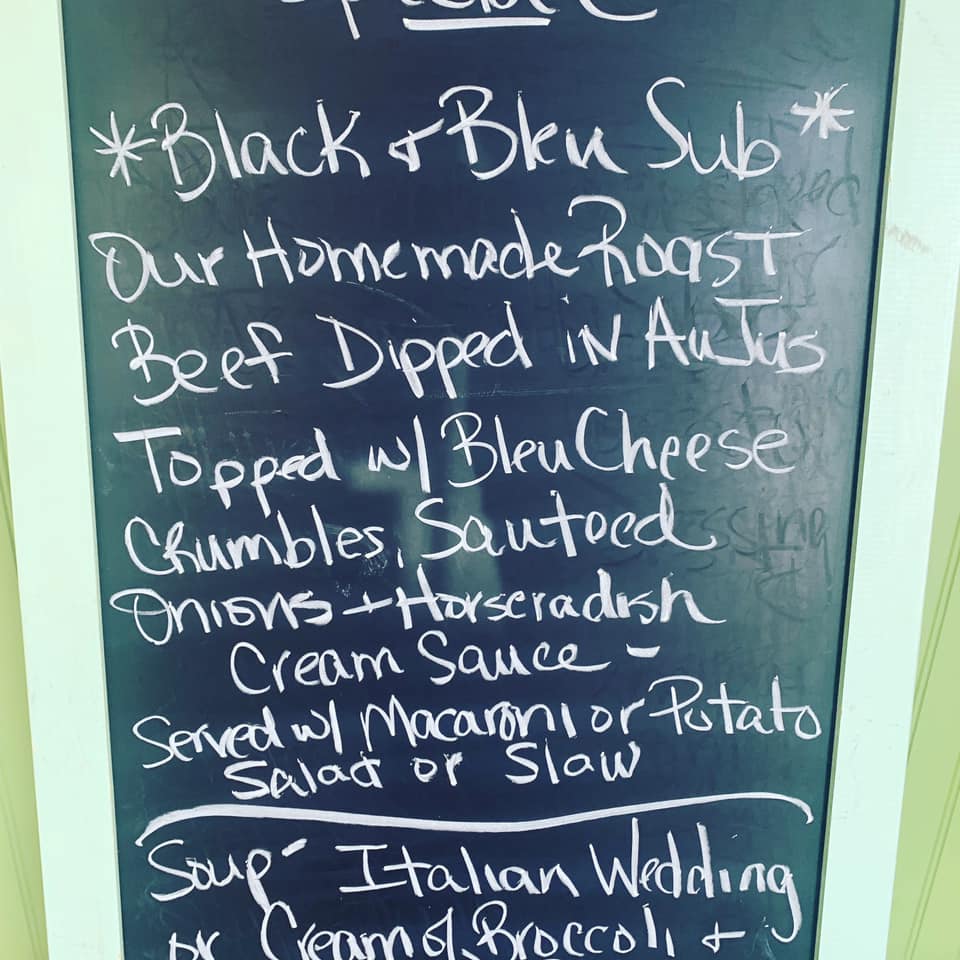 *Black & Bleu Sub*
Our Homemade Roast
Beef Dipped in Au Jus
Topped w/ Bleu Cheese
Crumbles, Sautoed
Onions + Horseradish
Cream Sauce -
Served w/ Macaroni or Potato
Salad or Slaw
Soup - Italian Wedding
or Cream of Broccoli +